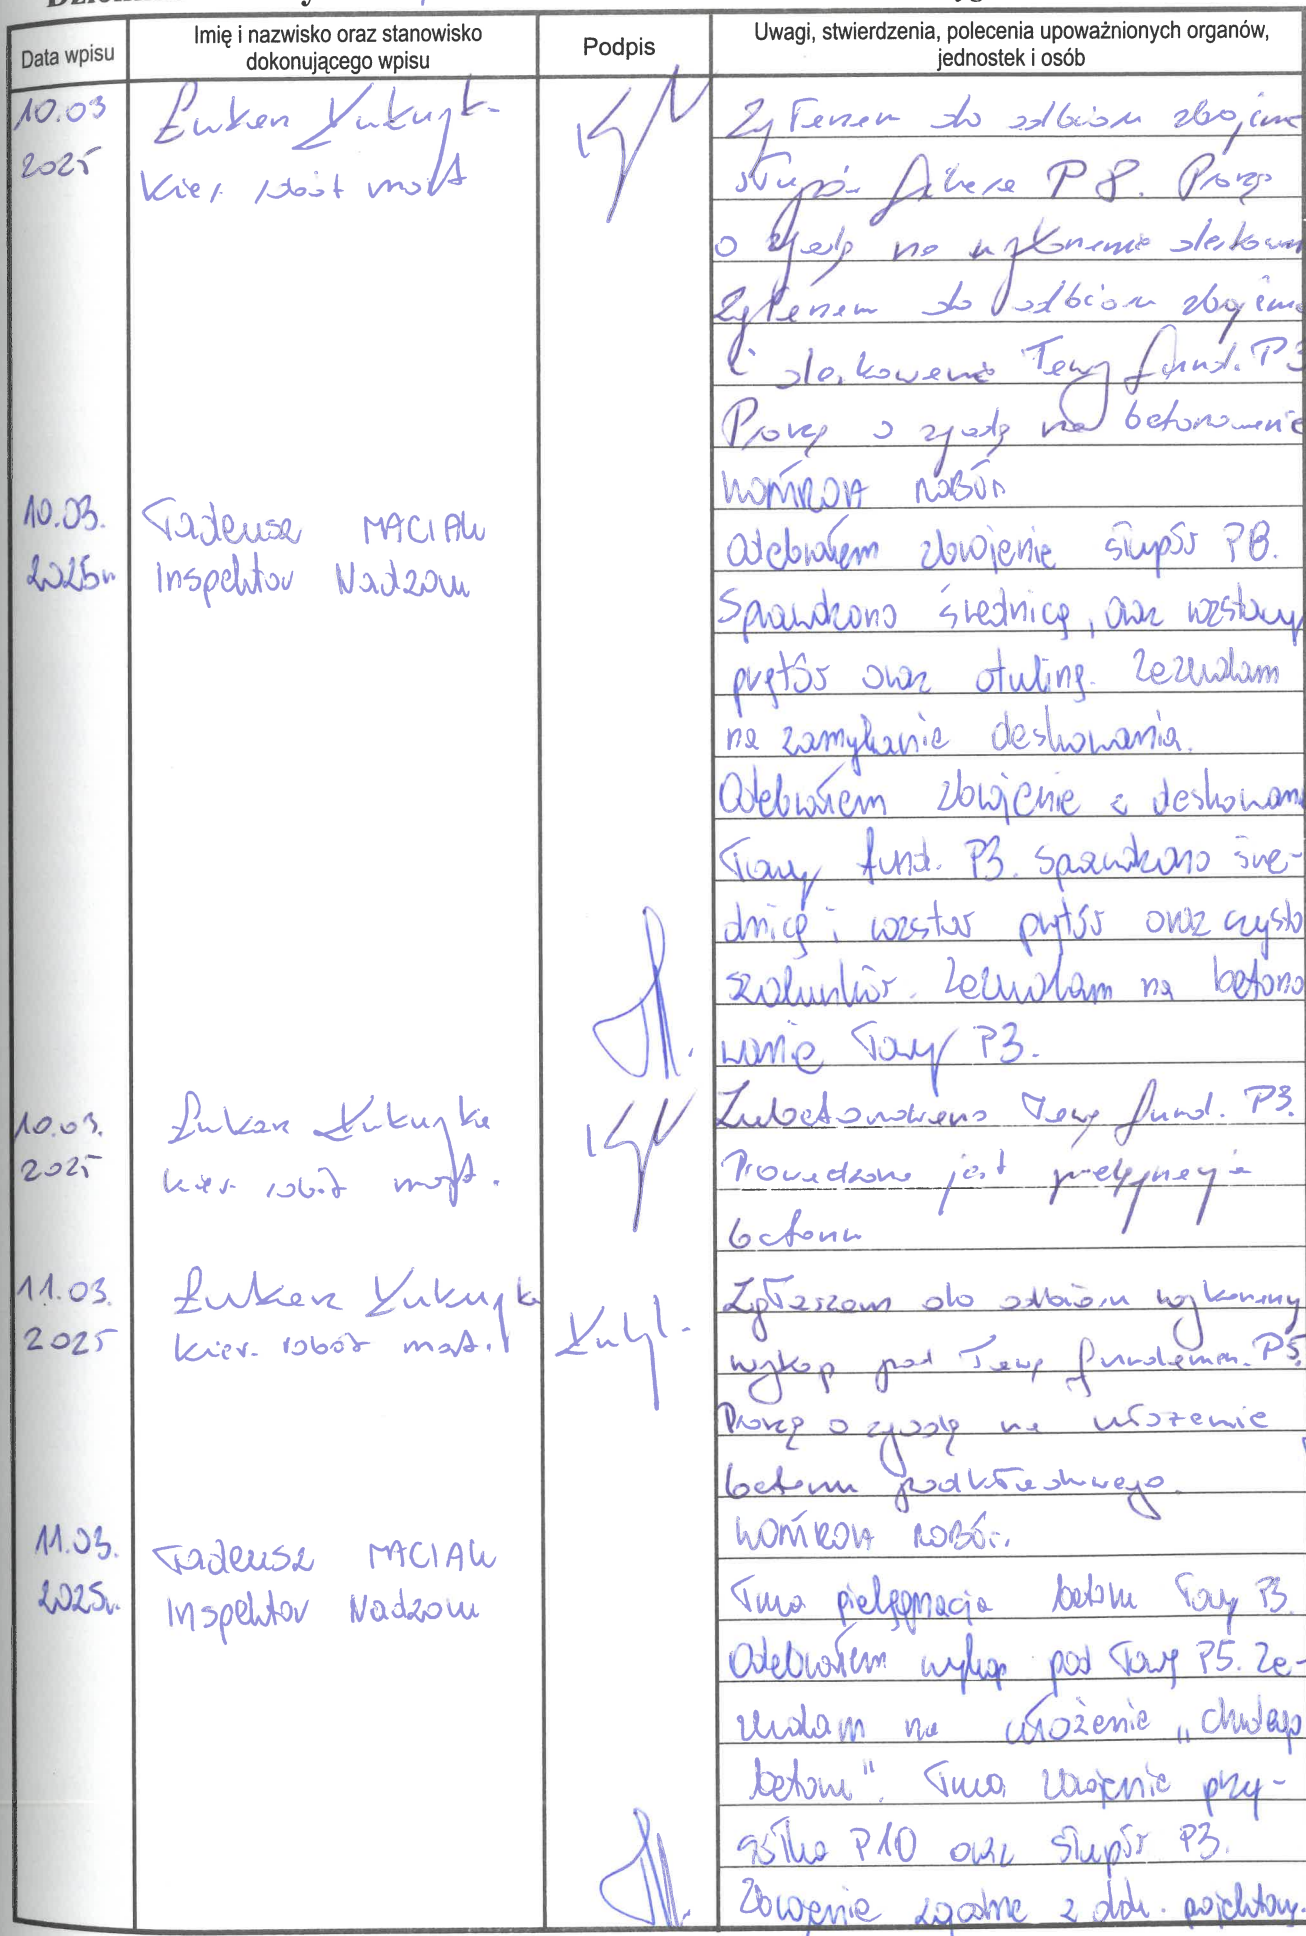 Data wpisu
Imię i nazwisko oraz stanowisko
dokonującego wpisu
Podpis
Uwagi, stwierdzenia, polecenia upoważnionych organów,
jednostek i osób
10.03
2025
Kier. robót most
Zgłaszam do odbioru zbrojenie
słupów filara P8. Proszę
o zgodę na wykonanie deskowan
Zgłaszam do odbioru zbrojenie
i deskowanie ławy fund. P3
Proszę o zgodę na betonowanie
10.03.
2025r
Tadeusz MACIAK
Inspektor Nadzoru
KONTROLA ROBÓT
Odebrałem zbrojenie słupów P8.
Sprawdzono średnicę, oraz rozstawy
prętów oraz otulinę. Zezwalam
na zamykanie deskowania.
Odebrałem zbrojenie i deskowani
ławy fund. P3. Sprawdzono śre-
dnicę i rozstaw prętów oraz czysto
szalunków. Zezwalam na betono
wanie ławy P3.
10.03.
2025
kier. robót most.
Zabetonowano ławę fund. P3.
Prowadzona jest pielęgnacja
betonu
11.03.
2025
kier. robót most.
Zgłaszam do odbioru wykonany
wykop pod ławę fundamen. P5.
Proszę o zgodę na ułożenie
betonu podkładowego.
11.03.
2025r.
Tadeusz MACIAK
Inspektor Nadzoru
KONTROLA ROBÓT.
Trwa pielęgnacja betonu ławy P3.
Odebrałem wykop pod ławę P5. Ze-
zwalam na ułożenie „chudego
betonu". Trwa zbrojenie przy-
czółka P10 oraz słupów P3.
Zbrojenie zgodne z dok. projektową.